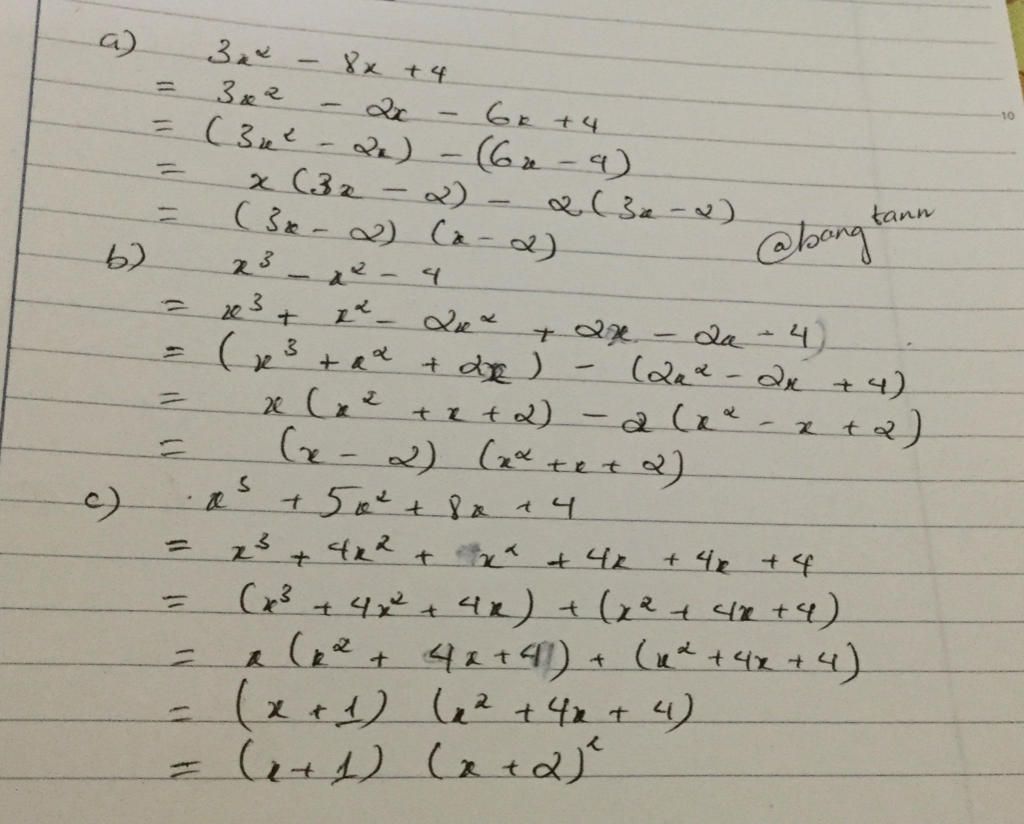 a) 3x² - 8x + 4
= 3x² - 2x - 6x + 4
= (3x² - 2x) - (6x - 4)
= x(3x - 2) - 2(3x - 2)
= (3x - 2) (x - 2)
@bangtann
b) x³ - x² - 4
= x³ + x² - 2x² + 2x - 2x - 4)
= (x³ + x² + 2x) - (2x² - 2x + 4)
= x(x² + x + 2) - 2(x² - x + 2)
= (x - 2) (x² + x + 2)
c) x³ + 5x² + 8x + 4
= x³ + 4x² + x² + 4x + 4x + 4
= (x³ + 4x² + 4x) + (x² + 4x + 4)
= x(x² + 4x + 4) + (x² + 4x + 4)
= (x + 1) (x² + 4x + 4)
= (x + 1) (x + 2)²
10